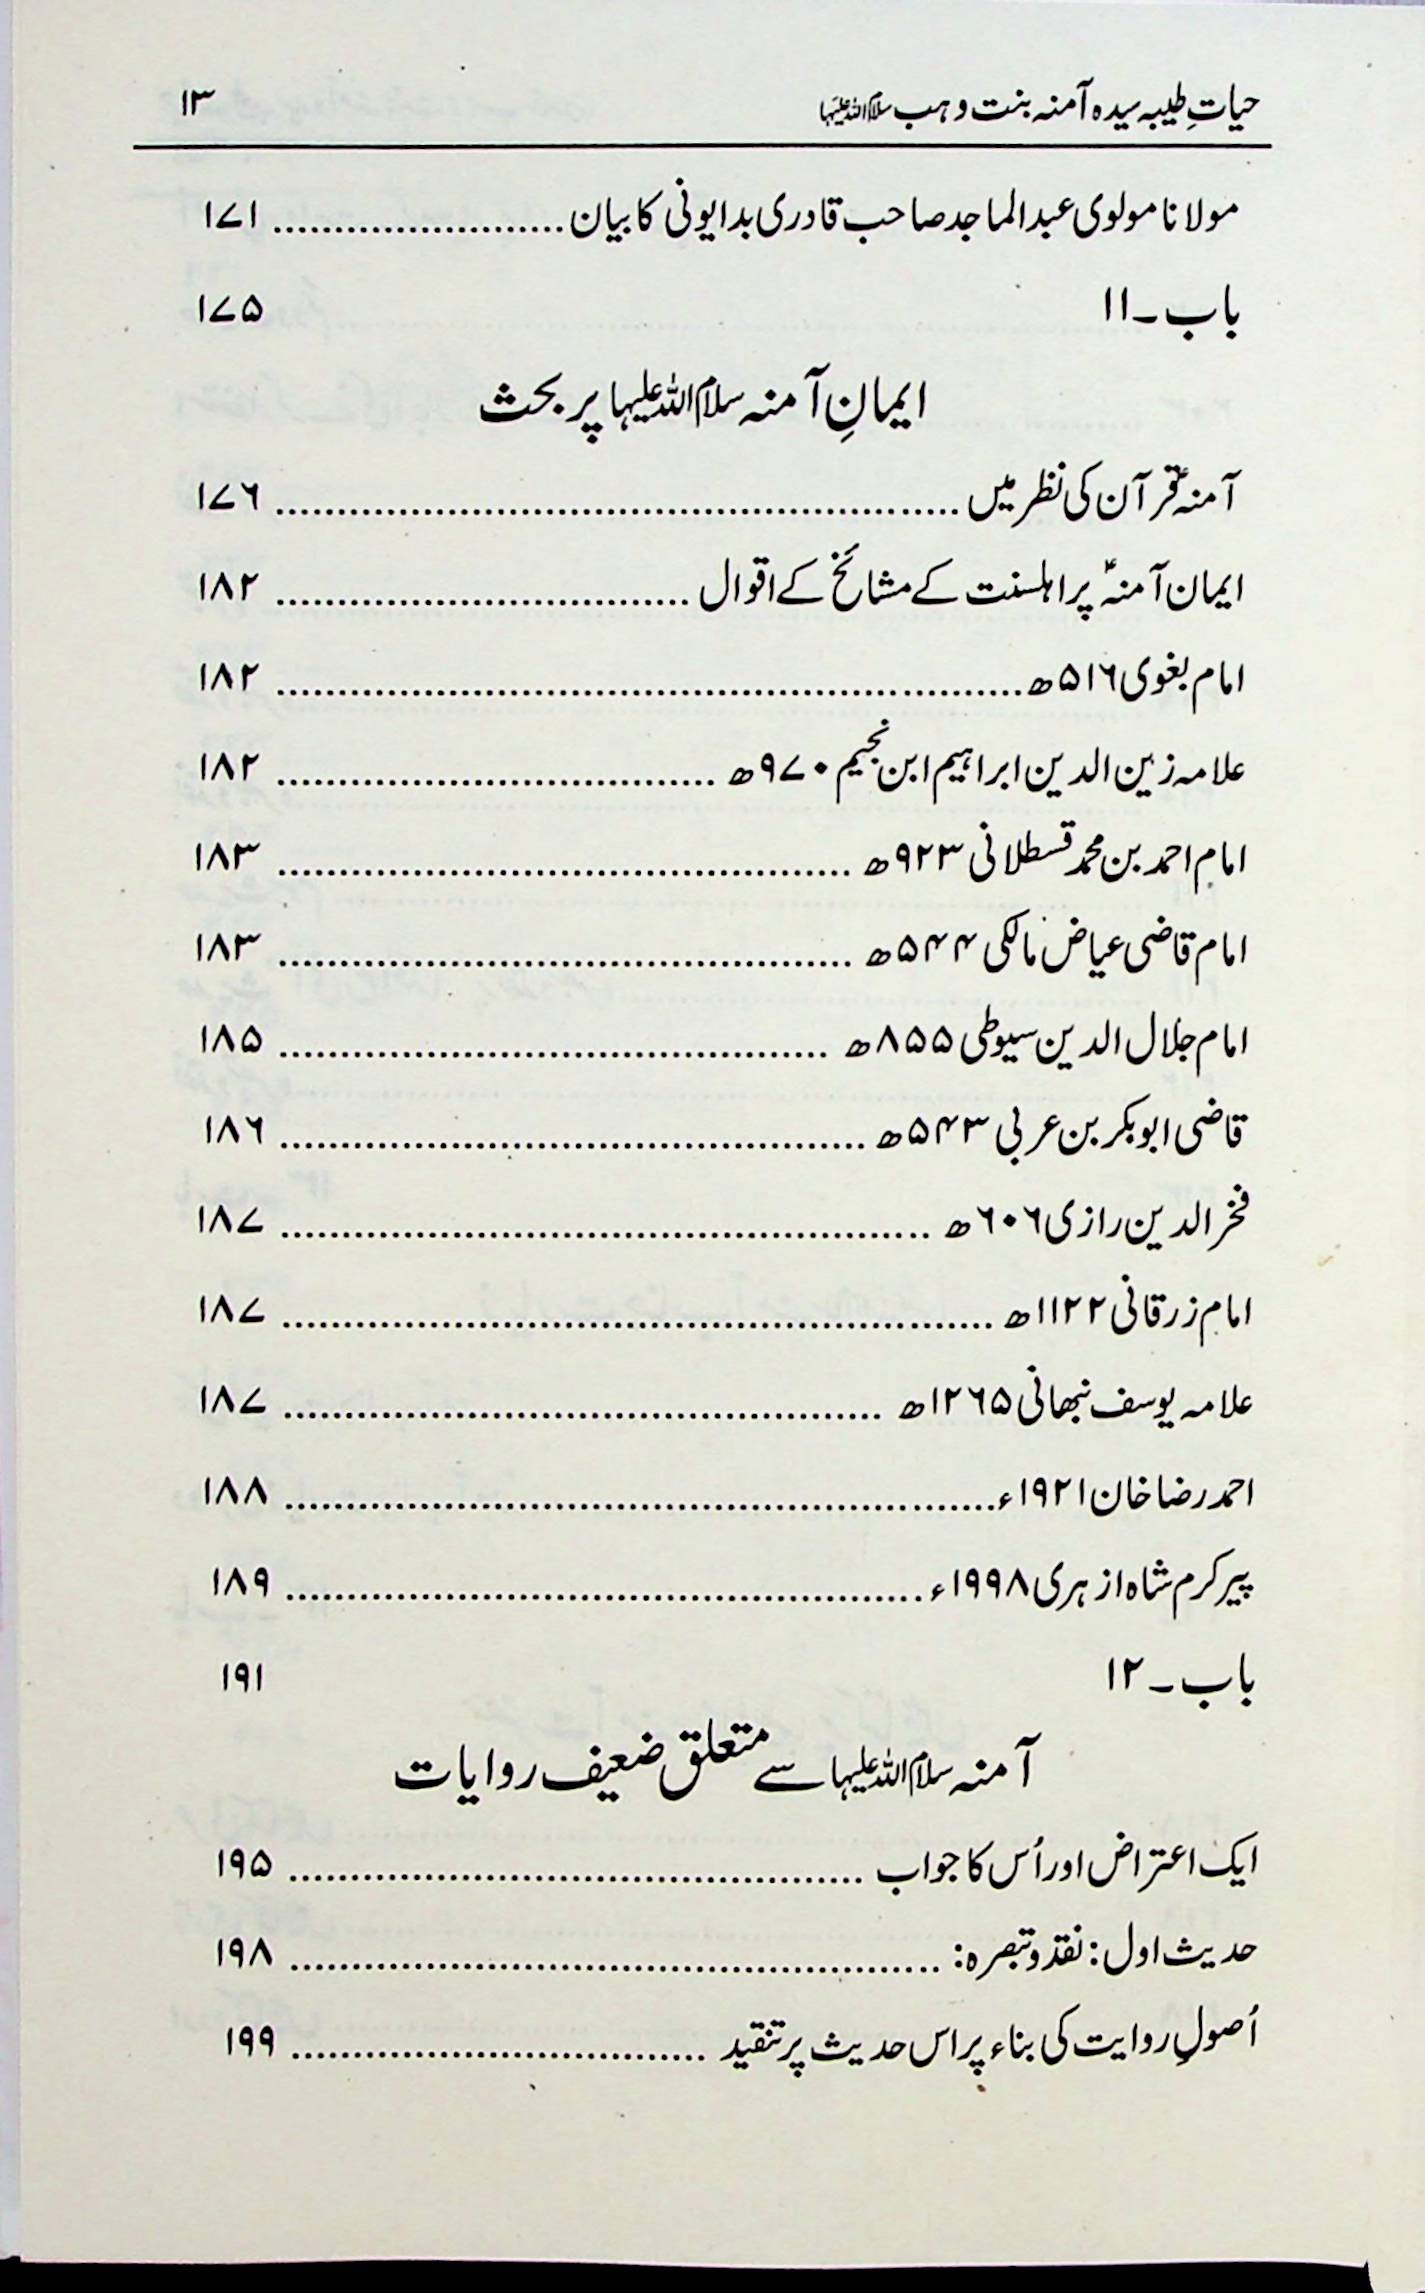 حیاتِ طیبہ سیدہ آمنہ بنت وہب سلام اللہ علیہا ۱۳
مولانا مولوی عبدالماجد صاحب قادری بدایونی کا بیان ........................ ۱۷۱
باب۔۱۱ ۱۷۵
ایمانِ آمنہ سلام اللہ علیہا پر بحث
آمنہؑ قرآن کی نظر میں ........................................................ ۱۷۶
ایمان آمنہؑ پر اہلسنت کے مشائخ کے اقوال .................................. ۱۸۲
امام بغوی ۵۱۶ھ ............................................................. ۱۸۲
علامہ زین الدین ابراہیم ابن نجیم ۹۷۰ھ .................................... ۱۸۲
امام احمد بن محمد قسطلانی ۹۲۳ھ ............................................... ۱۸۳
امام قاضی عیاض مالکی ۵۴۴ھ ............................................... ۱۸۳
امام جلال الدین سیوطی ۸۵۵ھ ............................................. ۱۸۵
قاضی ابوبکر بن عربی ۵۴۳ھ ................................................ ۱۸۶
فخر الدین رازی ۶۰۶ھ ..................................................... ۱۸۷
امام زرقانی ۱۱۲۲ھ .......................................................... ۱۸۷
علامہ یوسف نبھانی ۱۲۶۵ھ ................................................. ۱۸۷
احمد رضا خان ۱۹۲۱ء .......................................................... ۱۸۸
پیر کرم شاہ ازہری ۱۹۹۸ء .................................................... ۱۸۹
باب۔۱۲ ۱۹۱
آمنہ سلام اللہ علیہا سے متعلق ضعیف روایات
ایک اعتراض اور اُس کا جواب ............................................... ۱۹۵
حدیث اول: نقد و تبصرہ: ..................................................... ۱۹۸
اُصولِ روایت کی بناء پر اس حدیث پر تنقید .................................. ۱۹۹